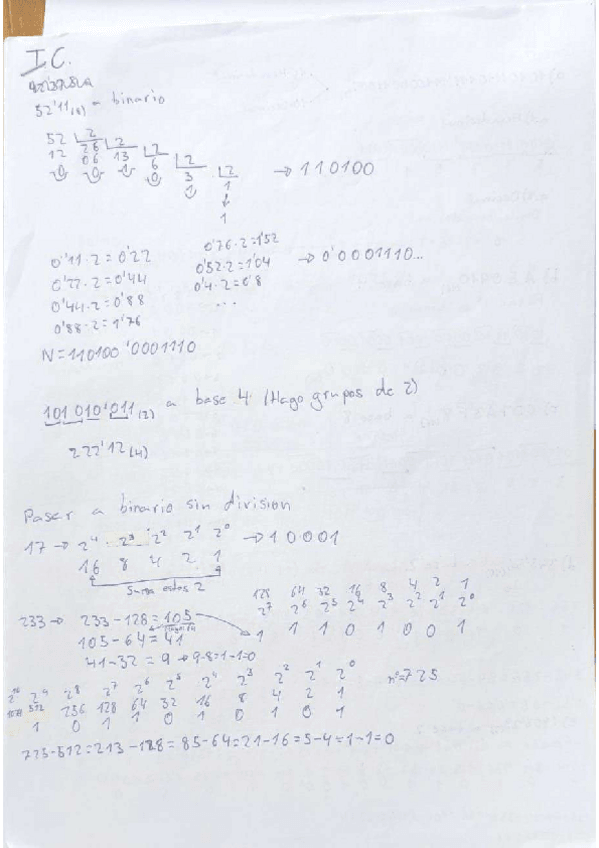 I.C.
52'11 a binario
52 2
12 26 2
06 13 2
0 0 1 6 2
0 3 2
1 1
1
→ 110100
0'11·2=0'22
0'22·2=0'44
0'44·2=0'88
0'88·2=1'76
0'76·2=1'52
0'52·2=1'04
0'4·2=0'8
...
→ 0'0001110...
N=110100'0001110
101010'011(2) a base 4 (Hago grupos de 2)
222'12(4)
Pasar a binario sin division
17 → 2^4 2^3 2^2 2^1 2^0 → 10001
16 8 4 2 1
Suma estos 2
128 64 32 16 8 4 2 1
2^7 2^6 2^5 2^4 2^3 2^2 2^1 2^0
1 1 1 0 1 0 0 1
233 → 233-128=105
105-64=41
41-32=9 → 9-8=1-1=0
2^8 2^7 2^6 2^5 2^4 2^3 2^2 2^1 2^0 nº=725
512 256 128 64 32 16 8 4 2 1
1 0 1 1 0 1 0 1 0 1
725-512=213-128=85-64=21-16=5-4=1-1=0